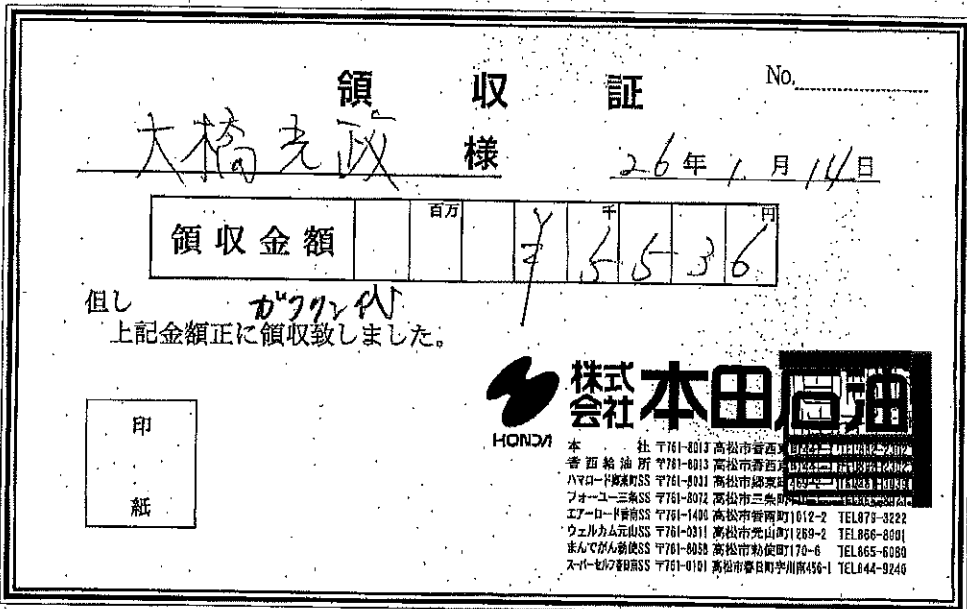 領収証
No.
大橋光政 様
26年1月14日
領収金額 百万 ¥ 千 5 5 3 6 円
但し ガソリン代
上記金額正に領収致しました。
印紙
HONDA
株式会社 本田石油
本社 〒761-8013 高松市香西
香西給油所 〒761-8013 高松市香西
ハマロード郷東町SS 〒761-8031 高松市郷東町
フォーユー三条SS 〒761-8072 高松市三条町
エアーロード香南SS 〒761-1400 高松市香南町1012-2 TEL879-3222
ウェルカム元山SS 〒761-0311 高松市元山町1269-2 TEL866-8001
まんでがん勅使SS 〒761-8058 高松市勅使町170-6 TEL865-6080
スーパーセルフ春日南SS 〒761-0101 高松市春日町字川南456-1 TEL844-9240